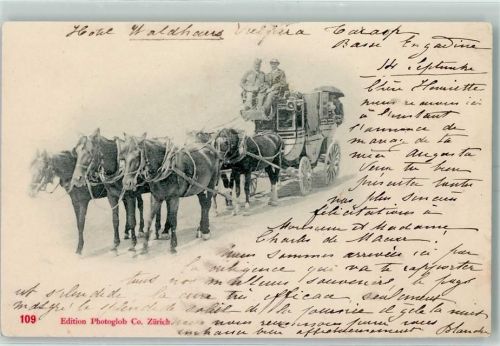 Hotel Waldhaus Vulpera Tarasp
Basse Engadine
14 Septembre
Chère Henriette
nous recevons ici
à l'instant
l'annonce du
mariage de ta
nièce Augusta
Veux tu bien
présenter toutes
nos plus sincères
félicitations à
Monsieur et Madame
Charles de
Nous sommes arrivés ici par
la diligence qui va te rapporter
tout nos meilleurs souvenirs le pays
est splendide la cure très efficace seulement
malgré le de la journée il gèle la nuit
nous nous pour vous
embrasser bien affectueusement Blanche
109 Edition Photoglob Co. Zürich.